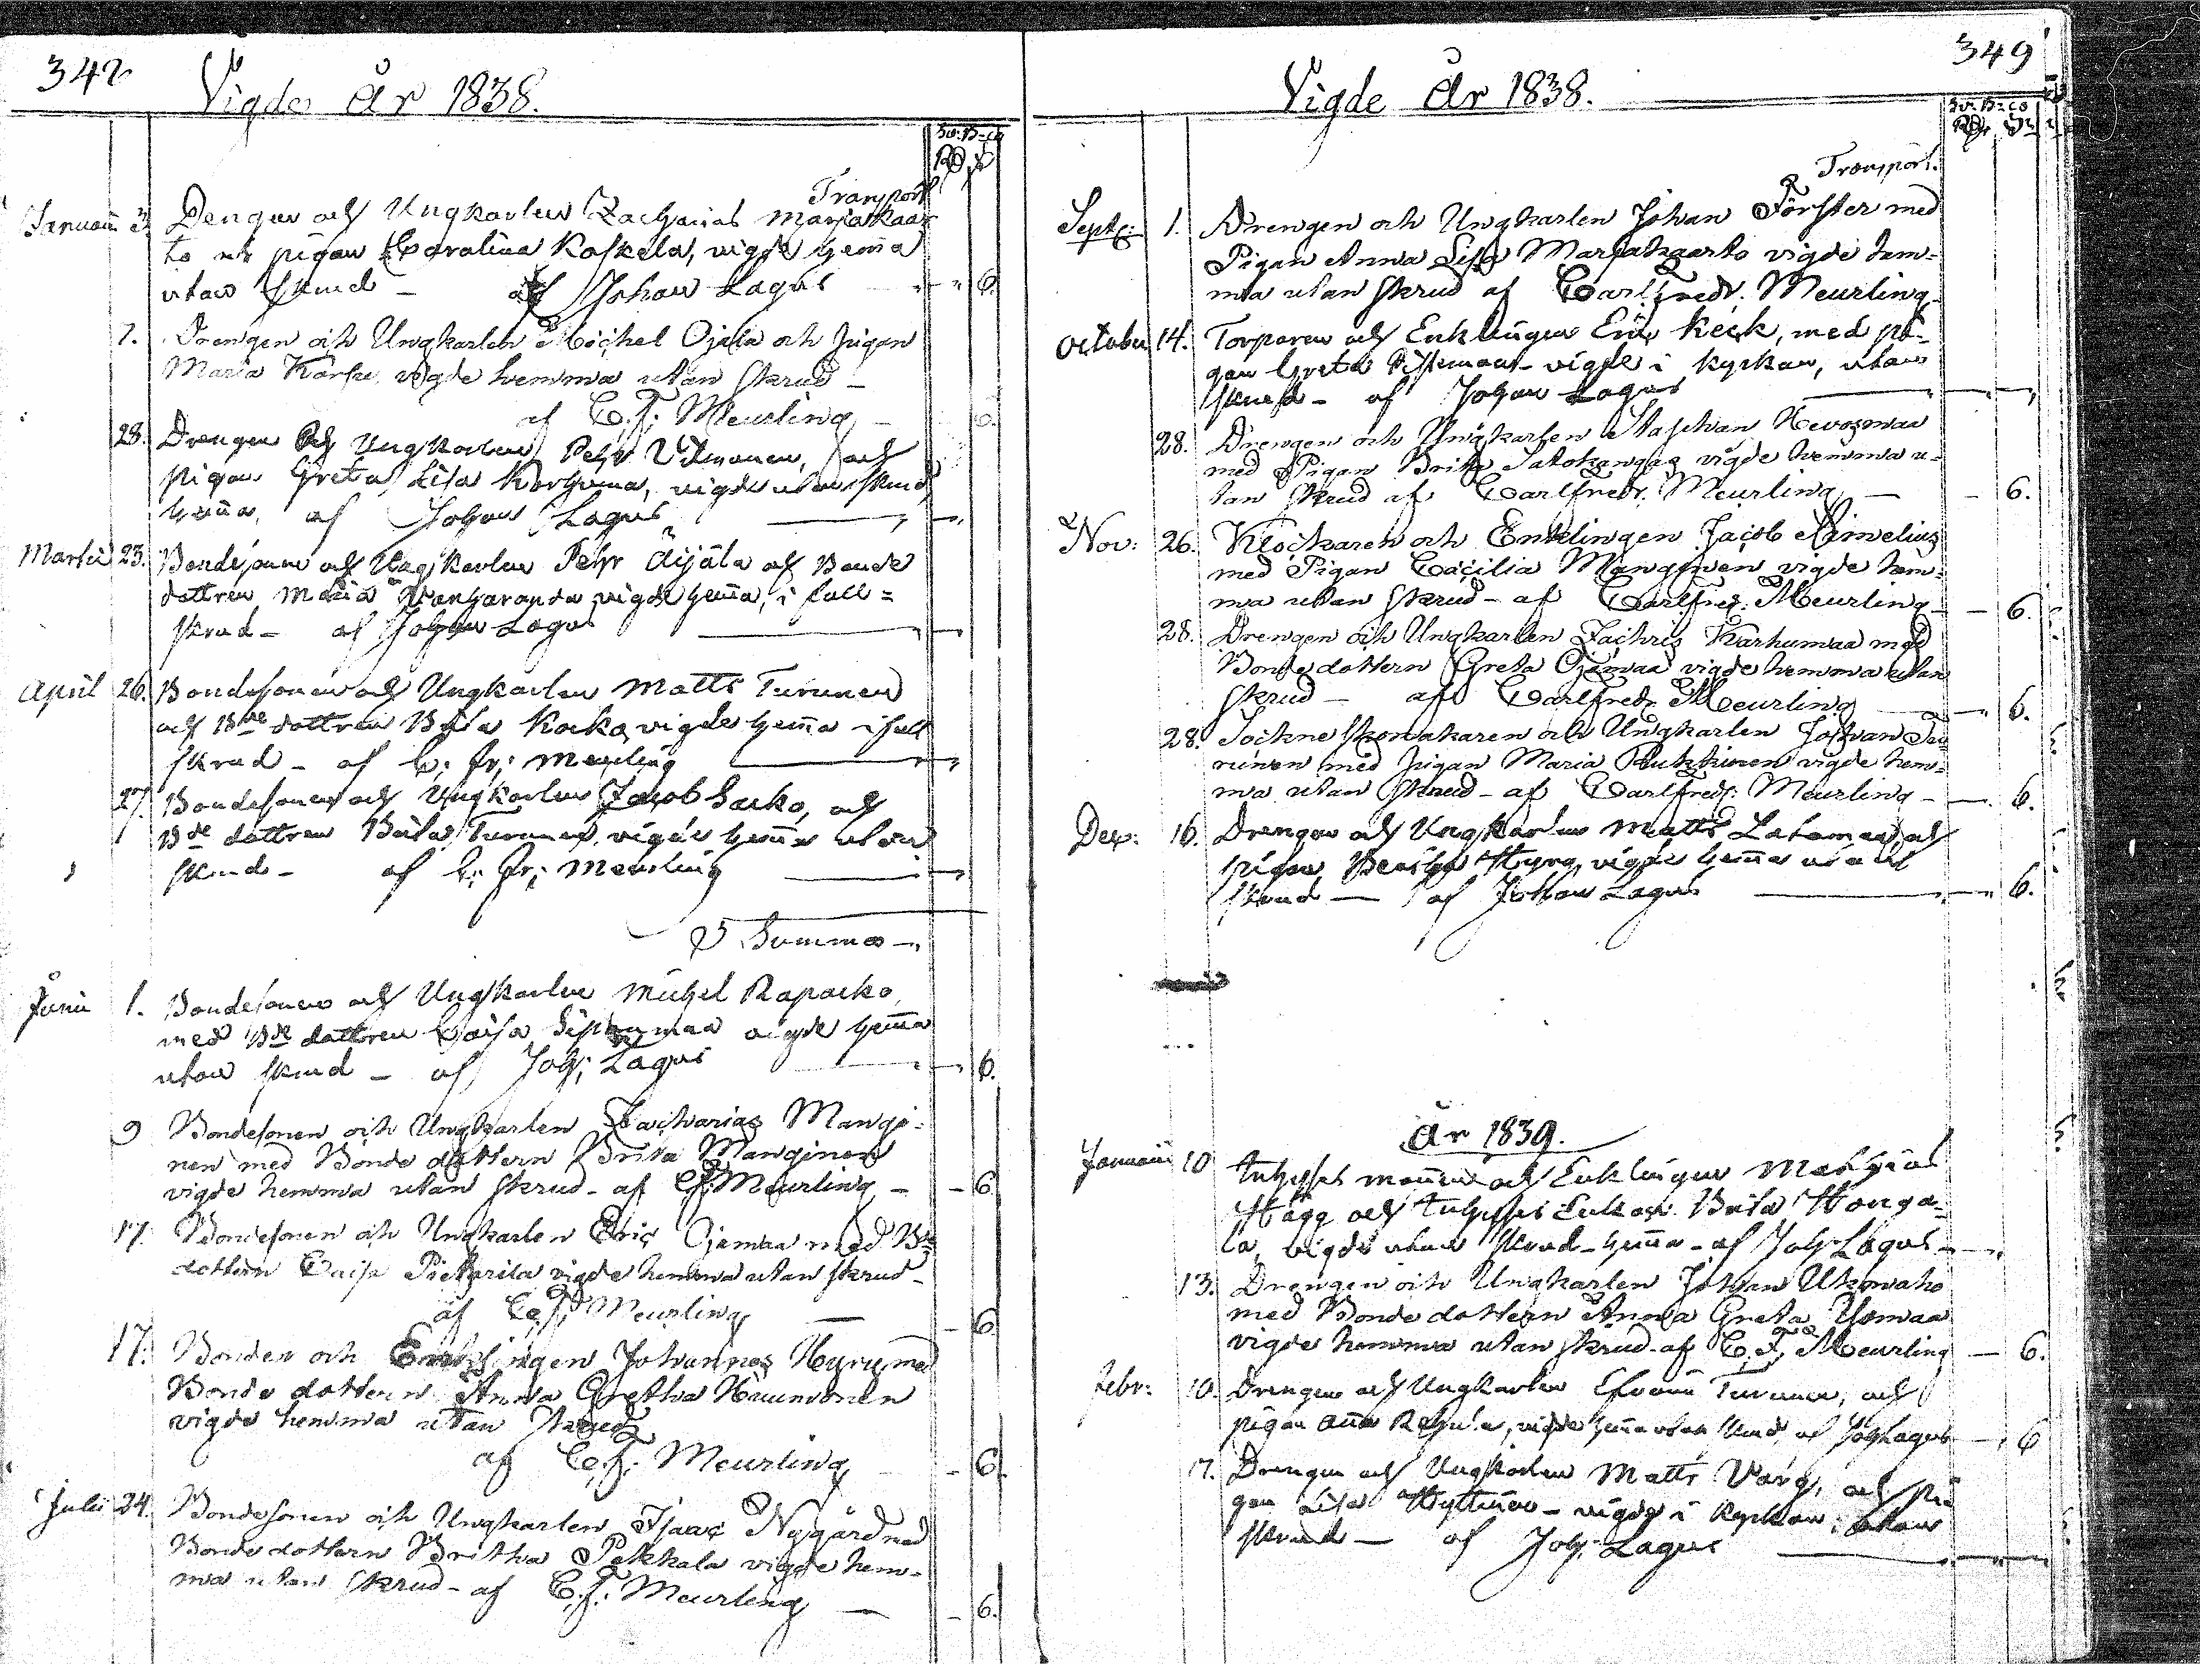 342
Vigde År 1838.
Sv. B-co
RD
Transport
Januarii 3. Drengen och Ungkarlen Zacharias Marjakaar
to pigan Carolina Koskela, vigde hema
utan skrud - af Johan Lagus 6.
7. Drengen och Ungkarlen Michel Ojala och pigan
Maria vigde hemma utan skrud -
af C. F. Meurling - 6.
28. Drengen och Ungkarlen Pehr och
pigan Greta Lisa vigde utan skrud
hema, af Johan Lagus
Martii 23. Bondesonen och Ungkarlen Pehr Äijälä och Bonde
dottren Maria vigde hema, i full=
skrud - af Johan Lagus
April 26. Bondesonen och Ungkarlen Matts Turunen
och Bde dottren Brita Kocko vigde hema i full
skrud - af C: Fr: Meurling
27. Bondesonen och Ungkarlen Jacob och
Bde dottren Brita Turunen, vigde hema utan
skrud - af C: Fr: Meurling
Summa -
Junii 1. Bondesonen och Ungkarlen Michel Rapacko,
med Bde dottren Caisa vigde hema
utan skrud - af Joh: Lagus - 6.
9 Bondesonen och Ungkarlen Zacharias Mangi-
nen med Bonde dottern Brita Manginen
vigde hemma utan skrud - af C. F. Meurling - - 6
17 Bondesonen och Ungkarlen Eric Ojamaa med Bde
dottern Caisa Pietarila vigde hemma utan skrud -
af C. F. Meurling - 6
17. Bonden och Enklingen Johannes Hyry med
Bonde dottern Anna Gretha
vigde hemma utan skrud
af C. F. Meurling - 6.
Julii 24. Bondesonen och Ungkarlen Isaac Nygård med
Bonde dottern Britha Pekkala vigde hem-
ma utan skrud - af C. F. Meurling - - 6.
349
Vigde År 1838.
Sv. B-co
Transport.
Septr: 1. Drengen och Ungkarlen Johan Förster med
Pigan Anna Lisa Marjakaarto vigde hem=
ma utan skrud af Carl Fredr. Meurling -
October 14. Torparen och Enklingen Eric Keck, med pi-
gan Greta vigde i kyrkan, utan
skrud - af Johan Lagus
28. Drengen och Ungkarlen Staphan
med Pigan Brita vigde hemma u-
tan skrud af Carl Fredr. Meurling - - 6.
Nov: 26. Klockaren och Enklingen Jacob Rimelius
med Pigan Cæcilia Manginen vigde hem-
ma utan skrud - af Carl Fred. Meurling - - 6.
28. Drengen och Ungkarlen Zachris Karhumaa med
Bonde dottern Greta Ojamaa vigde hemma utan
skrud - af Carl Fredr. Meurling - 6.
28. Sockne skomakaren och Ungkarlen Johan Tu-
runen med pigan Maria vigde hem=
ma utan skrud - af Carl Fredr: Meurling - - 6.
Dec: 16. Drengen och Ungkarlen Matts och
pigan Hyry, vigde hema utan
skrud - af Johan Lagus - 6.
År 1839.
Januarii 10 och Enklingen Mathias
Hägg och Enkan Brita Honga-
la, vigde utan skrud - hema - af Joh: Lagus -
13. Drengen och Ungkarlen Johan Ukonaho
med Bonde dottern Anna Greta
vigde hemma utan skrud - af C. F. Meurling - 6.
Febr: 10. Drengen och Ungkarlen Efraim Turunen, och
pigan Anna vigde hema utan skrud, af Joh Lagus - 6
17. Drengen och Ungkarlen Matts Varg, och pi
gan Lisa - vigde i kyrkan, utan
skrud - af Joh: Lagus